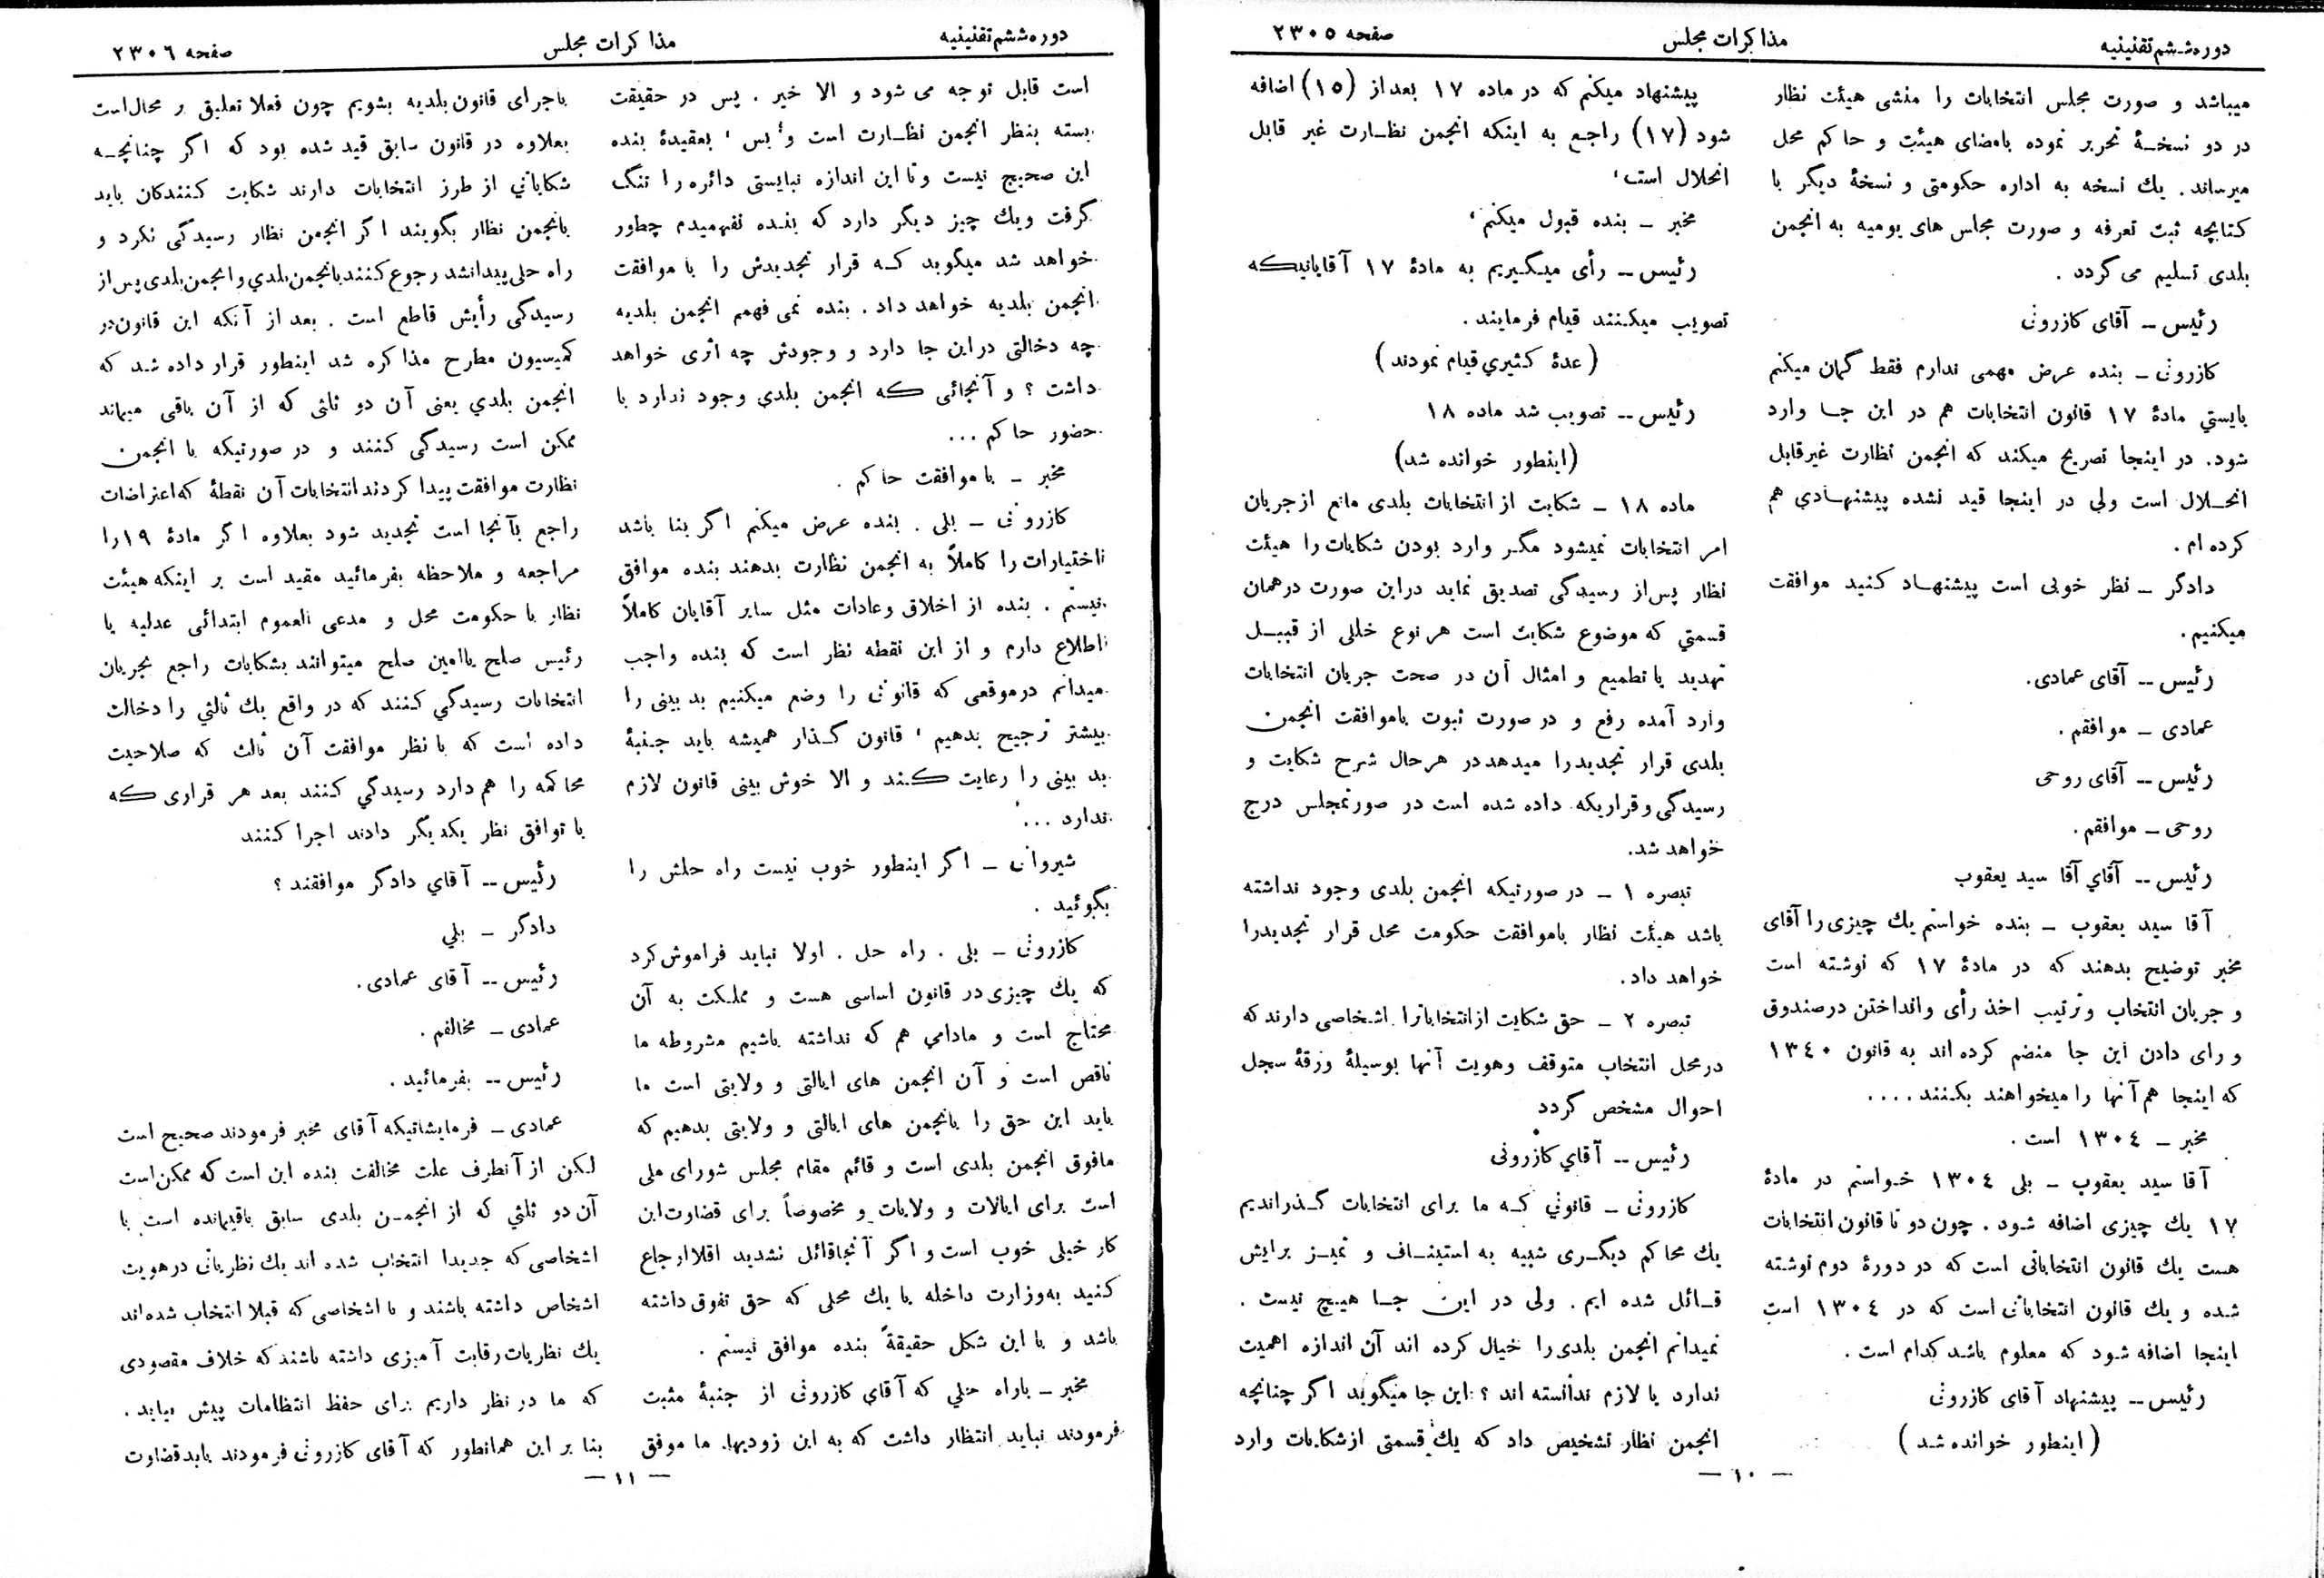 دوره ششم تقنینیه
مذاکرات مجلس
صفحه ۲۳۰۵
میباشد و صورت مجلس انتخابات را منشی هیئت نظار
در دو نسخهٔ تحریر نموده بامضای هیئت و حاکم محل
میرساند. یك نسخه به اداره حکومتی و نسخهٔ دیگر با
کتابچه ثبت تعرفه و صورت مجلس های یومیه به انجمن
بلدی تسلیم می گردد .
رئیس – آقای کازرونی
کازرونی – بنده عرض مهمی ندارم فقط گمان میکنم
بایستي مادهٔ ۱۷ قانون انتخابات هم در این جا وارد
شود. در اینجا تصریح میکند که انجمن نظارت غیرقابل
انحلال است ولی در اینجا قید نشده پیشنهادی هم
کرده ام .
دادگر – نظر خوبی است پیشنهاد کنید موافقت
میکنیم.
رئیس – آقای عمادی.
عمادی – موافقم .
رئیس – آقای روحی
روحی – موافقم.
رئیس – آقاي آقا سید یعقوب
آقا سید یعقوب – بنده خواستم یك چیزی را آقای
مخبر توضیح بدهند که در مادهٔ ۱۷ که نوشته است
و جریان انتخاب وترتیب اخذ رأی وانداختن درصندوق
و رای دادن این جا منضم کرده اند به قانون ۱۳۴۰
که اینجا هم آنها را میخواهند بکنند ....
مخبر – ۱۳۰۴ است .
آقا سید یعقوب – بلی ۱۳۰۴ خواستم در مادهٔ
۱۷ یك چیزی اضافه شود . چون دو تا قانون انتخابات
هست یك قانون انتخاباتی است که در دورهٔ دوم نوشته
شده و یك قانون انتخاباتی است که در ۱۳۰۴ است
اینجا اضافه شود که معلوم باشد کدام است .
رئیس – پیشنهاد آقای کازرونی
( اینطور خوانده شد )
پیشنهاد میکنم که در ماده ۱۷ بعد از (۱۵) اضافه
شود (۱۷) راجع به اینکه انجمن نظارت غیر قابل
انحلال است،
مخبر – بنده قبول میکنم،
رئیس – رأی میگیریم به مادهٔ ۱۷ آقایانیکه
تصویب میکنند قیام فرمایند .
( عدهٔ کثیري قیام نمودند )
رئیس – تصویب شد ماده ۱۸
(اینطور خوانده شد)
ماده ۱۸ – شکایت از انتخابات بلدی مانع از جریان
امر انتخابات نمیشود مگر وارد بودن شکایات را هیئت
نظار پس از رسیدگی تصدیق نماید دراین صورت درهمان
قسمتي که موضوع شکایت است هر نوع خللی از قبیل
تهدید یا تطمیع و امثال آن در صحت جریان انتخابات
وارد آمده رفع و در صورت ثبوت باموافقت انجمن
بلدی قرار تجدیدرا میدهد در هرحال شرح شکایت و
رسیدگی وقراریکه داده شده است در صورتمجلس درج
خواهد شد.
تبصره ۱ – در صورتیکه انجمن بلدی وجود نداشته
باشد هیئت نظار باموافقت حکومت محل قرار تجدیدرا
خواهد داد.
تبصره ۲ – حق شکایت ازانتخاباترا اشخاصی دارند که
درمحل انتخاب متوقف وهویت آنها بوسیلهٔ ورقهٔ سجل
احوال مشخص گردد
رئیس – آقاي کازرونی
کازرونی – قانوني که ما برای انتخابات گذراندیم
یك محاکم دیگری شبیه به استیناف و تمیز برایش
قائل شده ایم . ولی در این جا هیچ نیست .
نمیدانم انجمن بلدی را خیال کرده اند آن اندازه اهمیت
ندارد یا لازم ندانسته اند ؟ این جا میگوید اگر چنانچه
انجمن نظار تشخیص داد که یك قسمتی ازشکایات وارد
– ۱۰ –
دوره ششم تقنینیه
مذاکرات مجلس
صفحه ۲۳۰۶
است قابل توجه می شود و الا خیر . پس در حقیقت
بسته بنظر انجمن نظارت است و بس ، بعقیدهٔ بنده
این صحیح نیست و تا این اندازه نبایستی دائره را تنگ
گرفت ویك چیز دیگر دارد که بنده نفهمیدم چطور
خواهد شد میگوید که قرار تجدیدش را با موافقت
انجمن بلدیه خواهد داد . بنده نمی فهمم انجمن بلدیه
چه دخالتی دراین جا دارد و وجودش چه اثری خواهد
داشت ؟ و آنجائی که انجمن بلدی وجود ندارد با
حضور حاکم ...
مخبر – با موافقت حاکم .
کازرونی – بلی . بنده عرض میکنم اگر بنا باشد
اختیارات را کاملاً به انجمن نظارت بدهند بنده موافق
نیستم . بنده از اخلاق وعادات مثل سایر آقایان کاملاً
اطلاع دارم و از این نقطه نظر است که بنده واجب
میدانم درموقعی که قانونی را وضع میکنیم بد بینی را
بیشتر ترجیح بدهیم ، قانون گذار همیشه باید جنبهٔ
بد بینی را رعایت کند و الا خوش بینی قانون لازم
ندارد ...
شیروانی – اگر اینطور خوب نیست راه حلش را
بگوئید .
کازرونی – بلی . راه حل . اولا نباید فراموش کرد
که یك چیزی در قانون اساسی هست و مملکت به آن
محتاج است و مادامي هم که نداشته باشیم مشروطه ما
ناقص است و آن انجمن های ایالتی و ولایتی است ما
باید این حق را بانجمن های ایالتی و ولایتی بدهیم که
مافوق انجمن بلدی است و قائم مقام مجلس شورای ملی
است برای ایالات و ولایات و مخصوصاً برای قضاوت این
کار خیلی خوب است و اگر آنجاقائل نشدید اقلاارجاع
کنید به وزارت داخله یا یك محلی که حق تفوق داشته
باشد و با این شکل حقیقةً بنده موافق نیستم .
مخبر – باراه حلي که آقای کازرونی از جنبهٔ مثبت
فرمودند نباید انتظار داشت که به این زودیها ما موفق
باجرای قانون بلدیه بشویم چون فعلا تعلیق بر محال است
بعلاوه در قانون سابق قید شده بود که اگر چنانچه
شکایاتي از طرز انتخابات دارند شکایت کنندگان باید
بانجمن نظار بگویند اگر انجمن نظار رسیدگی نکرد و
راه حلی پیدانشد رجوع کنند بانجمن بلدي و انجمن بلدی پس از
رسیدگی رأیش قاطع است . بعد از آنکه این قانون در
کمیسیون مطرح مذاکره شد اینطور قرار داده شد که
انجمن بلدي یعنی آن دو ثلثی که از آن باقی میماند
ممکن است رسیدگی کنند و در صورتیکه با انجمن
نظارت موافقت پیدا کردند انتخابات آن نقطهٔ که اعتراضات
راجع بآنجا است تجدید شود بعلاوه اگر مادهٔ ۱۹ را
مراجعه و ملاحظه بفرمائید مقید است بر اینکه هیئت
نظار با حکومت محل و مدعی العموم ابتدائی عدلیه یا
رئیس صلح یاامین صلح میتوانند بشکایات راجع بجریان
انتخابات رسیدگي کنند که در واقع یك ثالثي را دخالت
داده است که با نظر موافقت آن ثالث که صلاحیت
محاکمه را هم دارد رسیدگي کنند بعد هر قراری که
با توافق نظر یکدیگر دادند اجرا کنند
رئیس – آقاي دادگر موافقند ؟
دادگر – بلي
رئیس – آقای عمادی .
عمادی – مخالفم .
رئیس – بفرمائید .
عمادی – فرمایشاتیکه آقای مخبر فرمودند صحیح است
لکن از آنطرف علت مخالفت بنده این است که ممکن است
آن دو ثلثي که از انجمن بلدی سابق باقیمانده است با
اشخاصی که جدیدا انتخاب شده اند یك نظریاتی در هویت
اشخاص داشته باشند و با اشخاصی که قبلا انتخاب شده اند
یك نظریات رقابت آمیزی داشته باشند که خلاف مقصودی
که ما در نظر داریم برای حفظ انتظامات پیش بیاید .
بنا بر این همانطور که آقای کازرونی فرمودند باید قضاوت
– ۱۱ –